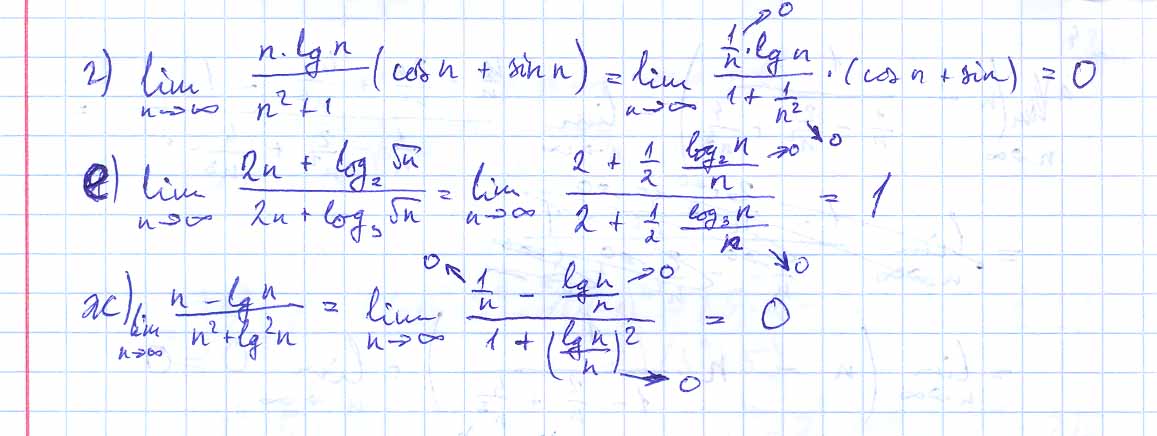 г) lim n→∞ n·lg n / (n² + 1) (cos n + sin n) = lim n→∞ (1/n · lg n →0) / (1 + 1/n² →0) · (cos n + sin) = 0
е) lim n→∞ (2n + log₂ √n) / (2n + log₃ √n) = lim n→∞ (2 + 1/2 log₂ n / n →0) / (2 + 1/2 log₃ n / n →0) = 1
ж) lim n→∞ (n - lg n) / (n² + lg² n) = lim n→∞ (0← 1/n - lg n / n →0) / (1 + (lg n / n)² →0) = 0